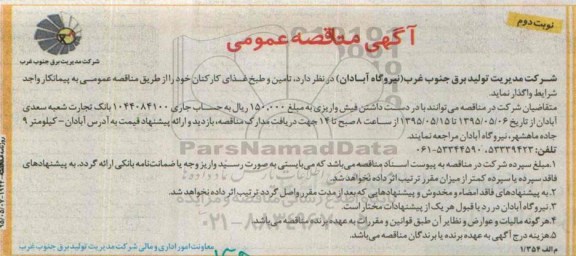 نوبت دوم
آگهی مناقصه عمومی
شرکت مدیریت برق جنوب غرب
شرکت مدیریت تولید برق جنوب غرب(نیروگاه آبادان) در نظر دارد، تامین و طبخ غذای کارکنان خود را از طریق مناقصه عمومی به پیمانکار واجد
شرایط واگذار نماید
متقاضیان شرکت در مناقصه می‌توانند با در دست داشتن فیش واریزی به مبلغ ۱۵۰,۰۰۰ ریال به حساب جاری ۱۰۴۴۰۸۴۱۰۰ بانک تجارت شعبه سعدی
آبادان از تاریخ ۱۳۹۵/۰۵/۰۶ تا ۱۳۹۵/۰۵/۱۵ از ساعت ۸ صبح تا ۱۴ جهت دریافت مدارک مناقصه، بازدید و ارائه پیشنهاد قیمت به آدرس آبادان- کیلومتر ۹
جاده ماهشهر، نیروگاه آبادان مراجعه نمایند.
تلفن: ۵۳۳۳۹۴۲۳، ۵۳۳۴۴۵۹۰-۰۶۱
۱.مبلغ سپرده شرکت در مناقصه به پیوست اسناد مناقصه می‌باشد که می‌بایستی به صورت رسید واریز وجه یا ضمانت‌نامه بانکی ارائه گردد. به پیشنهادهای
فاقد سپرده یا سپرده کمتر از میزان مقرر ترتیب اثر داده نخواهد شد.
۲.به پیشنهادهای فاقد امضاء و مخدوش و پیشنهادهایی که بعد از مدت مقرر واصل گردد ترتیب اثر داده نخواهد شد.
۳.نیروگاه آبادان در رد یا قبول هر یک از پیشنهادات مختار است.
۴.هر گونه مالیات و عوارض و نظایر آن طبق قوانین و مقررات به عهده برنده مناقصه می‌باشد.
۵.هزینه درج آگهی به عهده برنده یا برندگان مناقصه می‌باشد.
معاونت امور اداری و مالی شرکت مدیریت تولید برق جنوب غرب
م الف ۱/۳۵۴
ParsNamadData
۰۲۱-۸۸۳۴۹۶۷۰